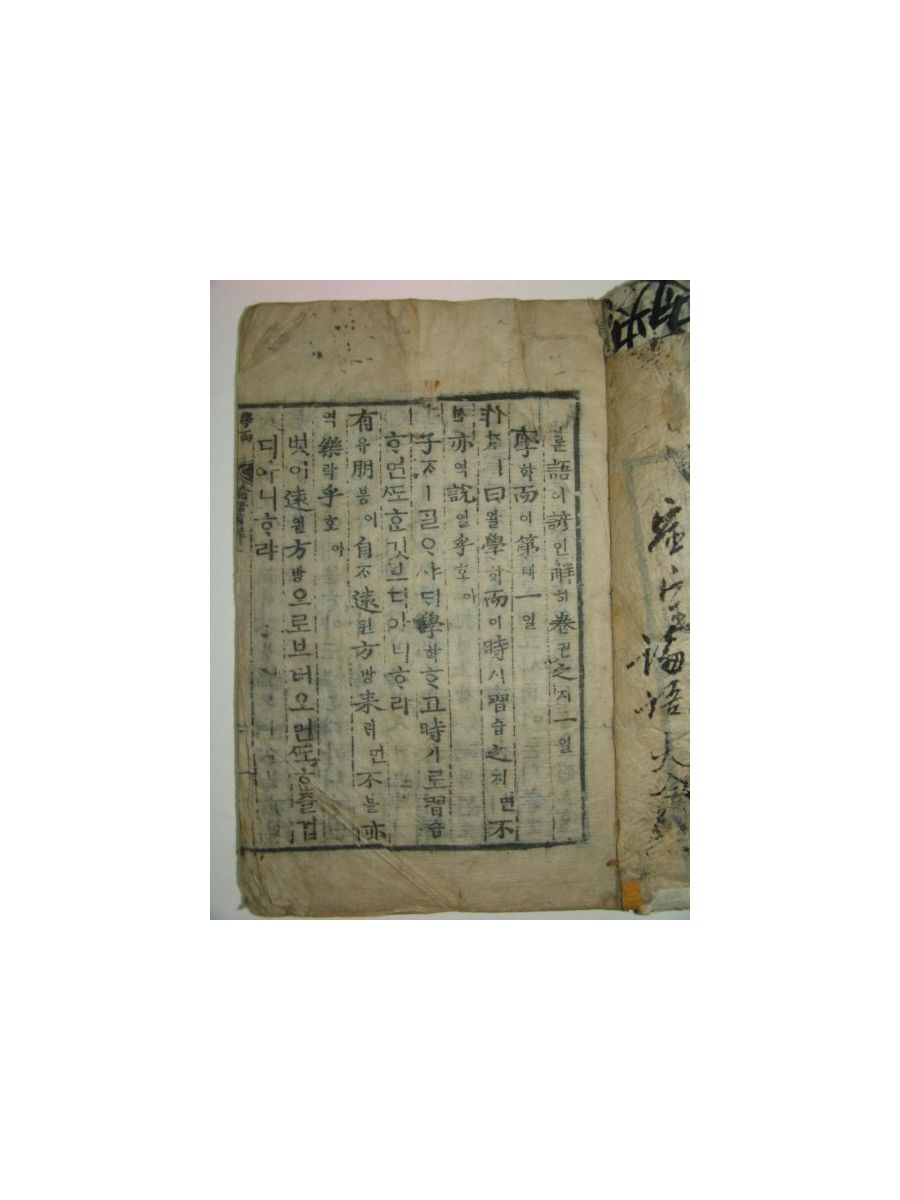 론語어諺언解ᄒᆡ卷권之지一일
學학而이第뎨一일
子ᄌᆞㅣ曰왈學학而이時시習습之지면不
블亦역說열乎호아
子ᄌᆞㅣᄀᆞᆯᄋᆞ샤ᄃᆡ學학ᄒᆞ고時시로習습
ᄒᆞ면ᄯᅩᄒᆞᆫ깃브디아니ᄒᆞ랴
有유朋붕이自ᄌᆞ遠원方방來ᄅᆡ면不블亦
역樂락乎호아
벗이遠원方방으로브터오면ᄯᅩᄒᆞᆫ즐겁
디아니ᄒᆞ랴
學而
論語大全